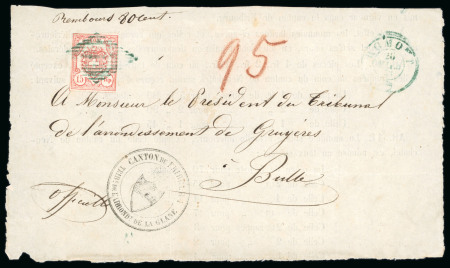 Rembours 80 Cent.
15
95
A Monsieur le Président du Tribunal
de l'arrondissement de Gruyères
à
Bulle
Officielle
CANTON DE FRIBOURG
DE LA GLANE